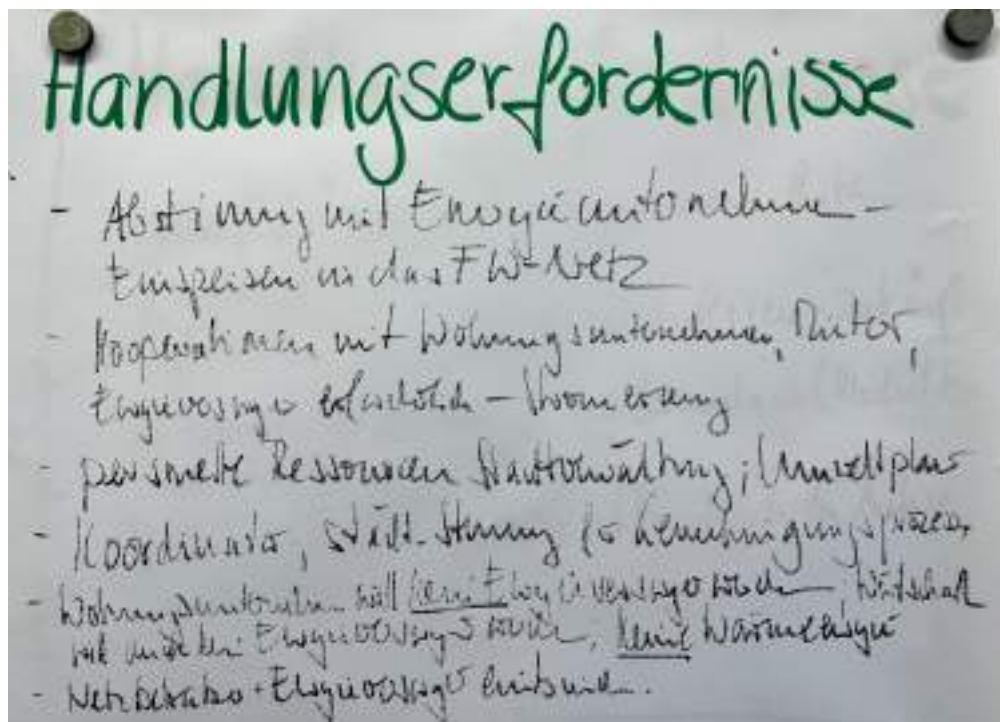 Handlungserfordernisse
- Abstimmung mit Energieunternehmen -
Einspeisen in das FW-Netz
- Kooperationen mit Wohnungsunternehmen, Mieter,
Energieversorger erforderlich -
- personelle Ressourcen Stadtverwaltung, Umweltplan
- Koordinator, städt. für Genehmigungsprozess
- Wohnungsunternehmen will kein Energieversorger werden Wirtschaft
will kein Energieversorger werden, keine Wärmeenergie
- Netzbetreiber + Energieversorger